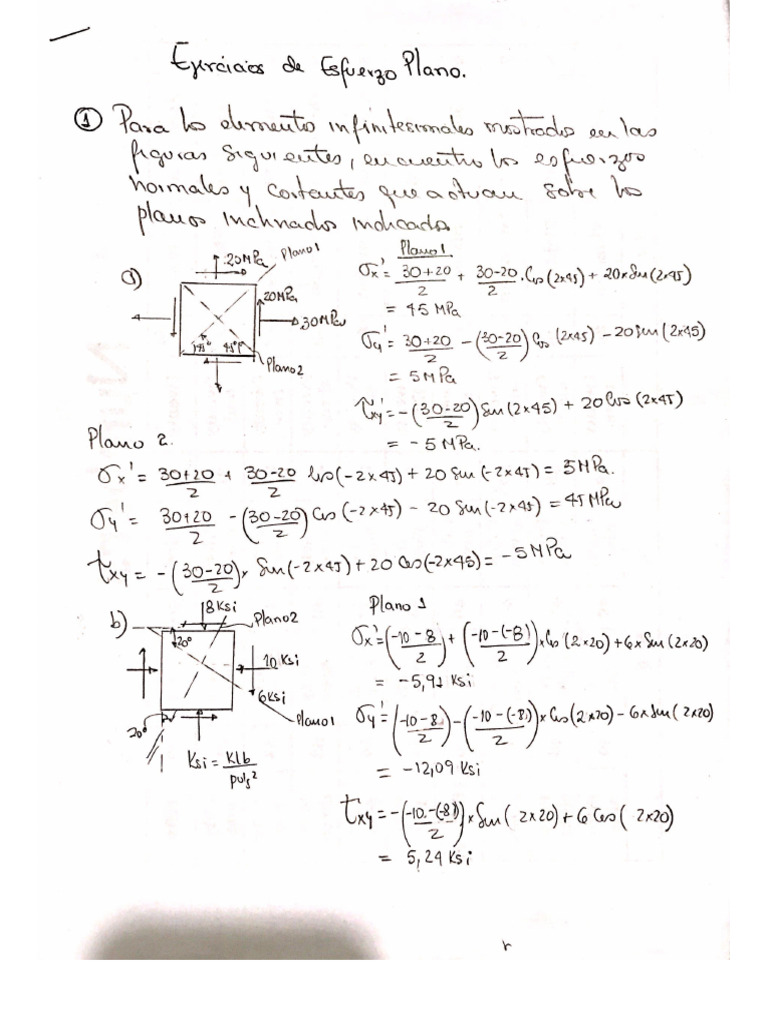 Ejercicios de Esfuerzo Plano.
① Para los elementos infinitesimales mostrados en las
figuras siguientes, encuentre los esfuerzos
normales y cortantes que actuan sobre los
planos inclinados indicados.
a)
20MPa
Plano1
20MPa
30MPa
45° 45°
Plano2
Plano1
σx' = 30+20/2 + 30-20/2 . Cos(2x45) + 20xSen(2x45)
= 45 MPa
σy' = 30+20/2 - (30-20/2) Cos (2x45) - 20 sen (2x45)
= 5MPa
τxy' = -(30-20/2) Sen(2x45) + 20 Cos (2x45)
= -5 MPa.
Plano 2.
σx' = 30+20/2 + 30-20/2 Cos(-2x45) + 20 Sen(-2x45) = 5MPa.
σy' = 30+20/2 - (30-20/2) Cos (-2x45) - 20 Sen(-2x45) = 45 MPa
τxy = -(30-20/2) x Sen(-2x45) + 20 Cos(-2x45) = -5 MPa
b)
8 Ksi
Plano2
20°
10 Ksi
6Ksi
Plano1
20°
Ksi = Klb/pulg²
Plano 1
σx' = (-10-8/2) + (-10-(-8)/2) x Cos (2x20) + 6x Sen (2x20)
= -5,91 Ksi
σy' = (-10-8/2) - (-10-(-8)/2) x Cos(2x20) - 6x Sen( 2x20)
= -12,09 Ksi
τxy = -(-10-(-8)/2) x Sen( 2x20) + 6 Cos( 2x20)
= 5,24 Ksi